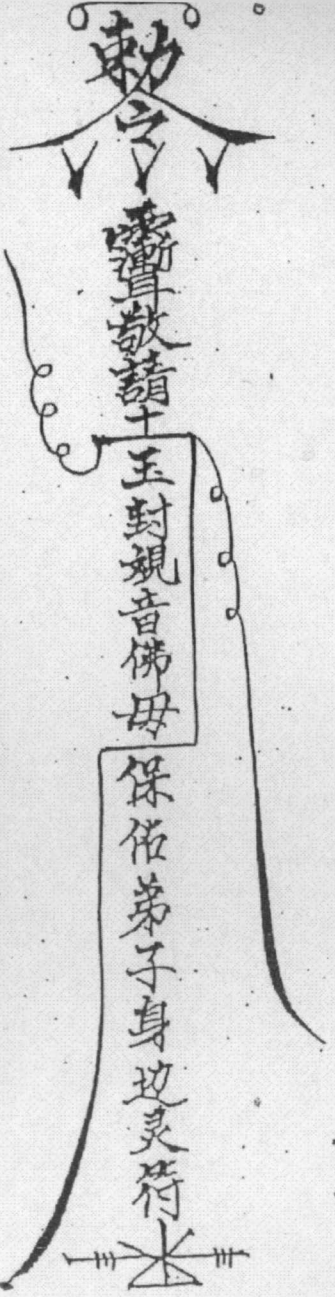 敕令
敬請
玉封観音佛母
保佑弟子身边灵符